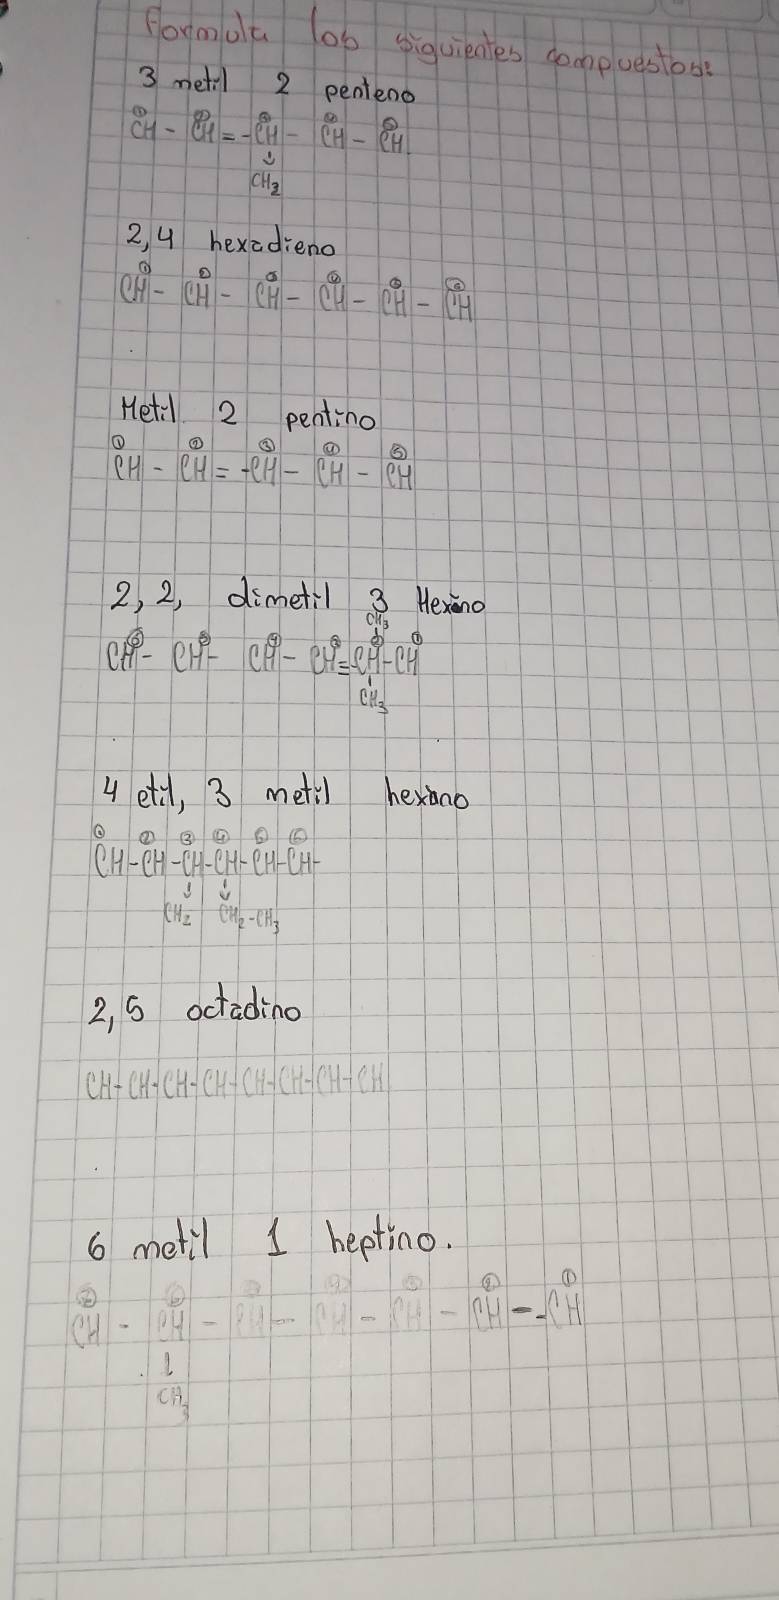 formula los siguientes compuestos:
3 metil 2 penteno
① ② ③ ④ ⑤
CH - CH = -CH - CH - CH
CH₂
2,4 hexadieno
CH - CH - CH - CH - CH - CH
Metil 2 pentino
① ② ③ ④ ⑤
CH - CH = -CH - CH - CH
2, 2, dimetil 3 Hexino
CH₃
CH - CH - CH - CH = -CH - CH
CH₃
4 etil, 3 metil hexano
① ② ③ ④ ⑤ ⑥
CH-CH-CH-CH-CH-CH-
CH₂ CH₂-CH₃
2, 5 octadino
CH-CH-CH-CH-CH-CH-CH-CH
6 metil 1 heptino.
CH - CH - CH - CH - CH - CH - -CH
CH₃